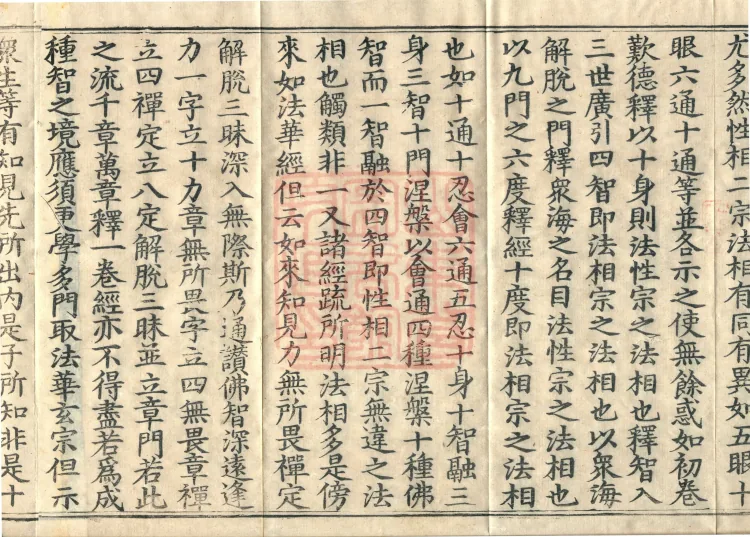 尤多然性相二宗法相有同有異如五眼十
眼六通十通等並各示之使無餘惑如初卷
歎德釋以十身則法性宗之法相也釋智入
三世廣引四智即法相宗之法相也以衆海
解脫之門釋衆海之名目法性宗之法相也
以九門之六度釋經十度即法相宗之法相
也如十通十忍會六通五忍十身十智融三
身三智十門涅槃以會通四種涅槃十種佛
智而一智融於四智即性相二宗無違之法
相也觸類非一又諸經疏所明法相多是傍
來如法華經但云如來知見力無所畏禪定
解脫三昧深入無際斯乃通讚佛智深遠逢
力一字立十力章無所畏字立四無畏章禪
立四禪定立八定解脫三昧並立章門若此
之流千章萬章釋一卷經亦不得盡若爲成
種智之境應須更學多門取法華玄宗但示
衆生等有知見先所出內是子所知非是十